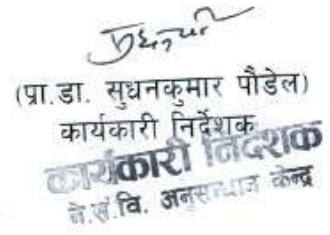 (प्रा.डा. सुधनकुमार पौडेल)
कार्यकारी निर्देशक
कार्यकारी निर्देशक
ने.सं.वि. अनुसन्धान केन्द्र